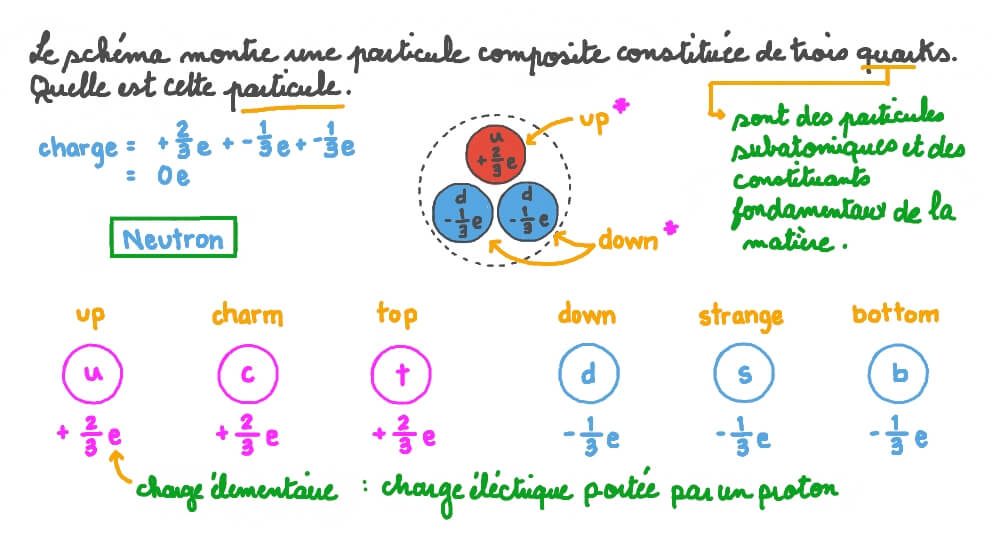 Le schéma montre une particule composite constituée de trois quarks.
Quelle est cette particule.
charge = + 2/3 e + - 1/3 e + - 1/3 e
= 0e
Neutron
u
+ 2/3 e
d
- 1/3 e
d
- 1/3 e
up *
down *
sont des particules
subatomiques et des
constituants
fondamentaux de la
matière.
up charm top down strange bottom
u c t d s b
+ 2/3 e + 2/3 e + 2/3 e - 1/3 e - 1/3 e - 1/3 e
charge élementaire : charge éléctrique portée par un proton